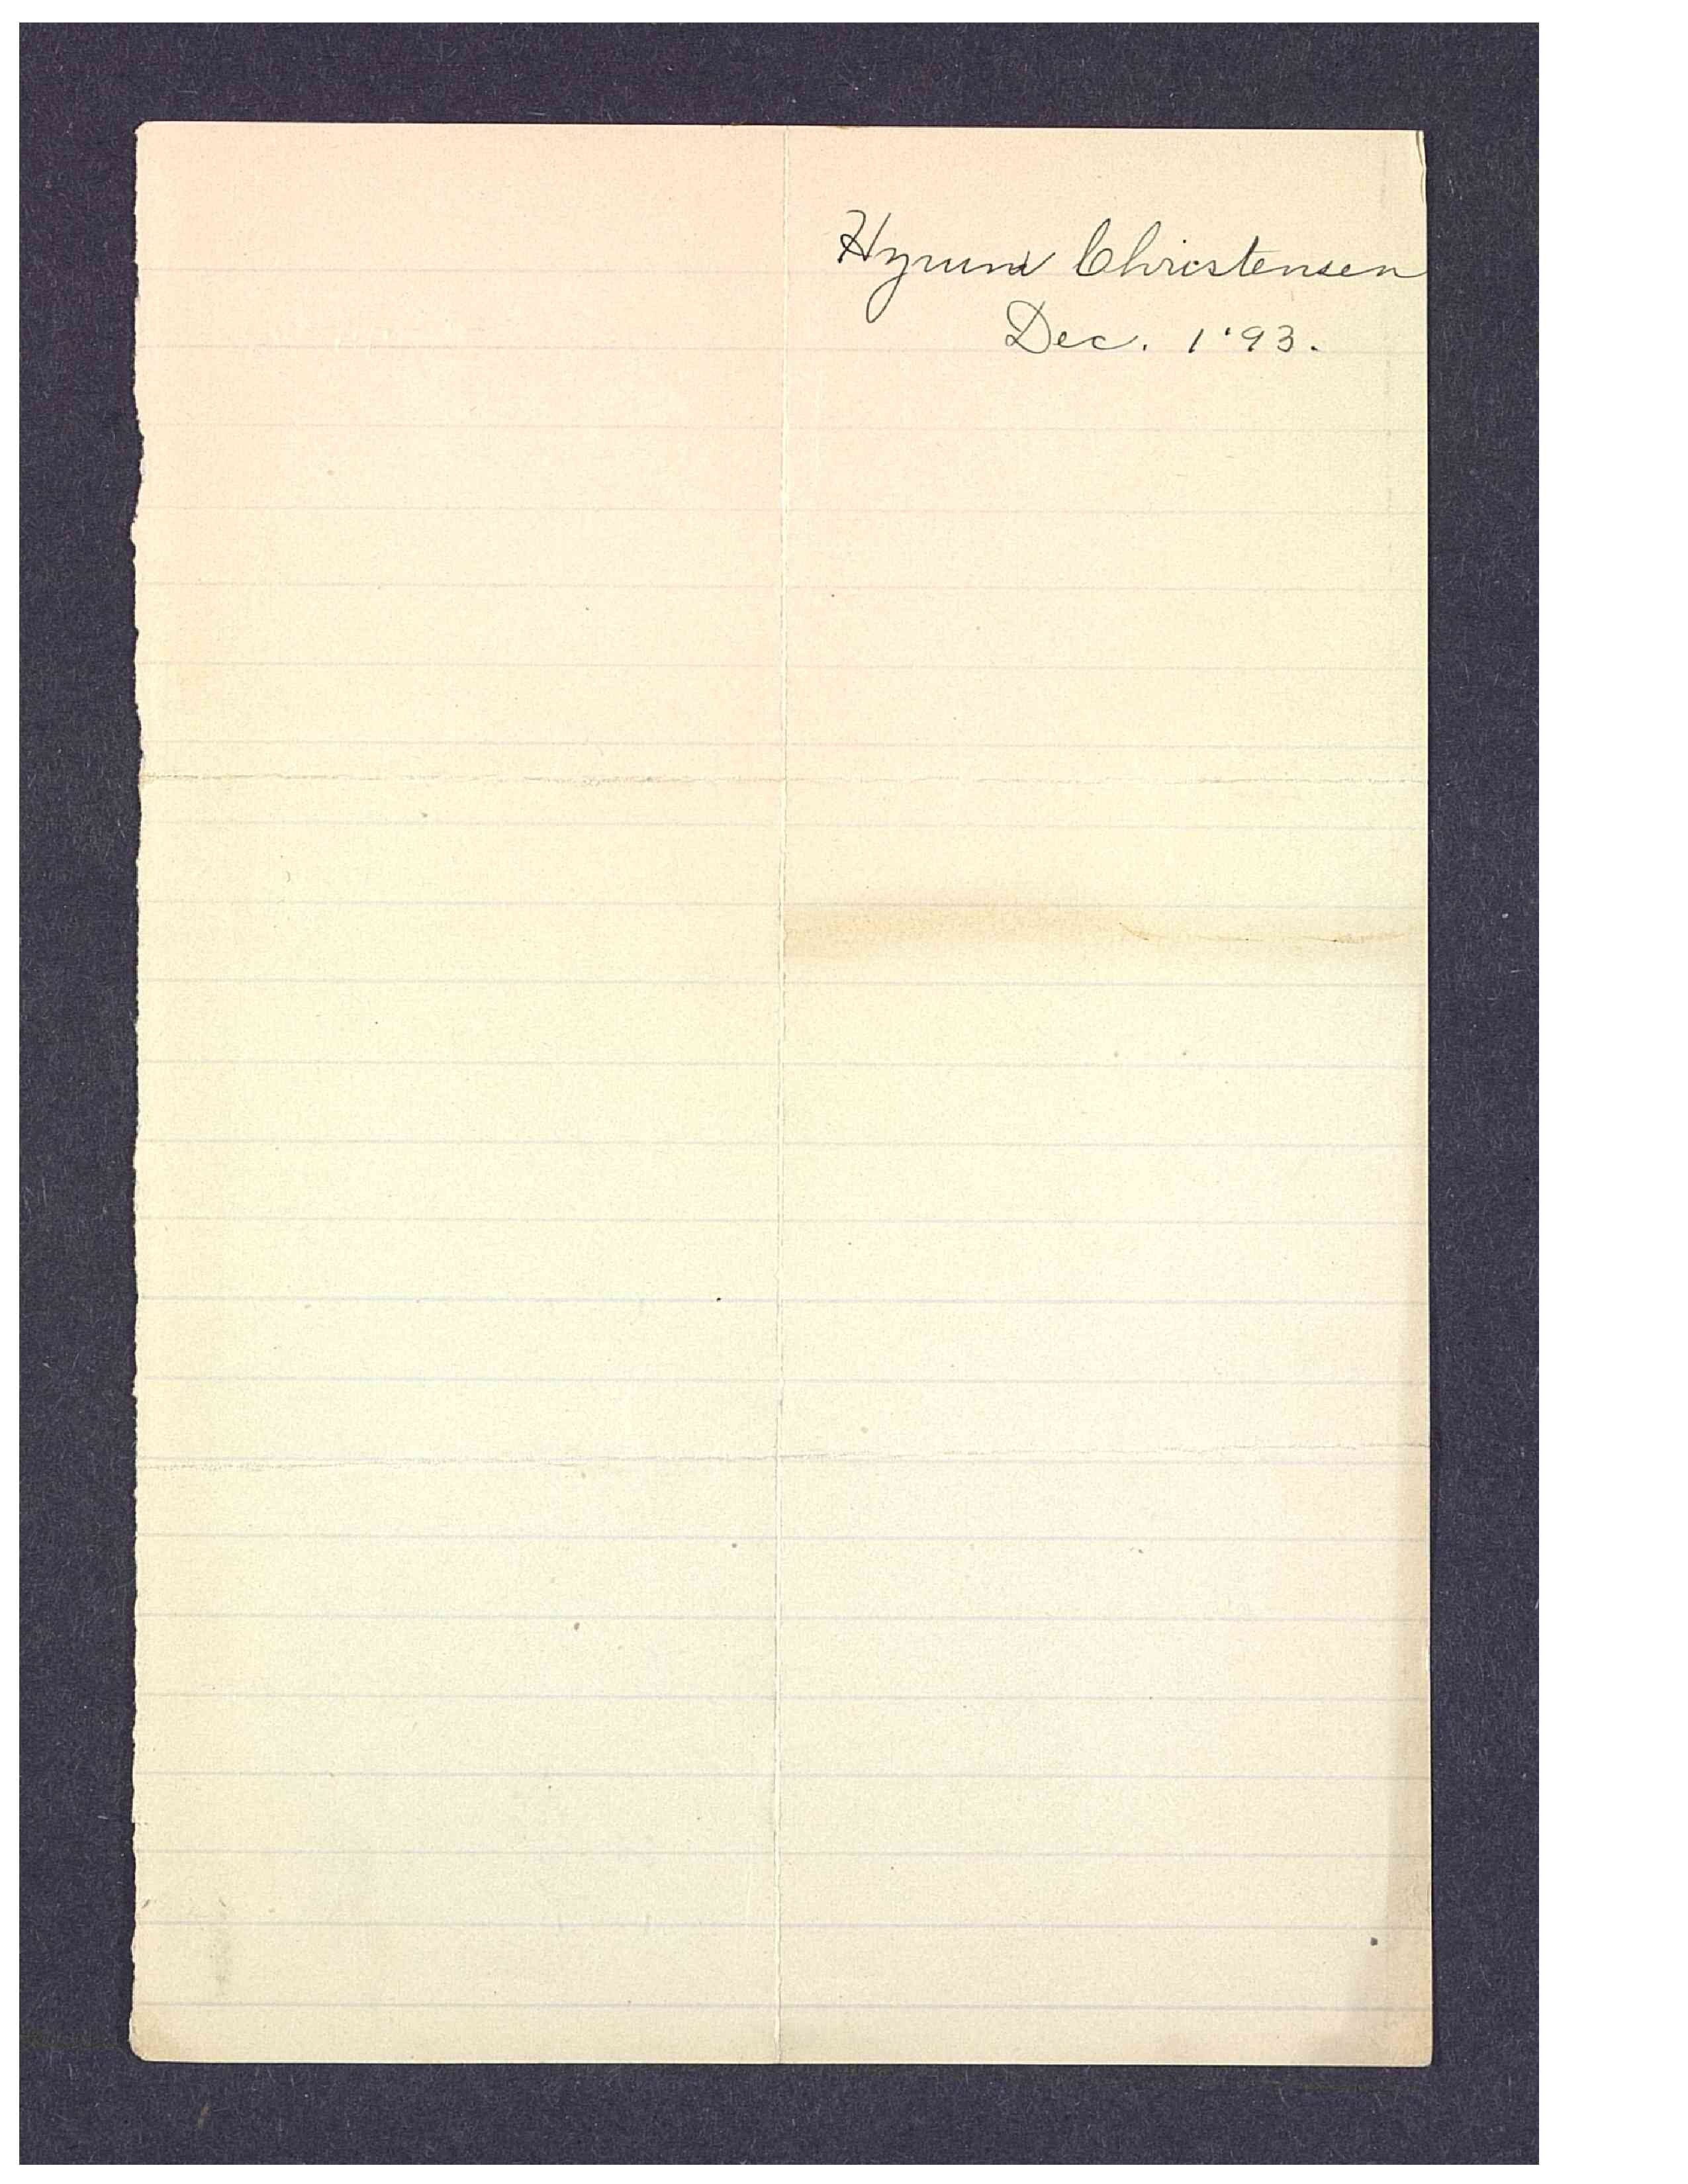 Hyrum Christensen
Dec. 1 '93.